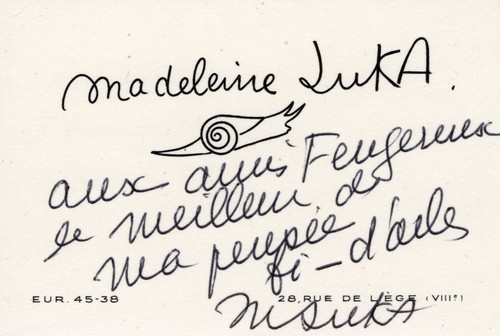 madeleine LUKA.
aux amis Feugereux
le meilleur de
ma pensée
EUR. 45-38
28, RUE DE LIÈGE (VIIIᵉ)
M LUKA